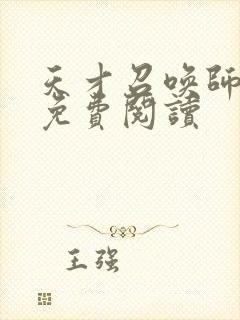 天才召喚師
免費閱讀
王强